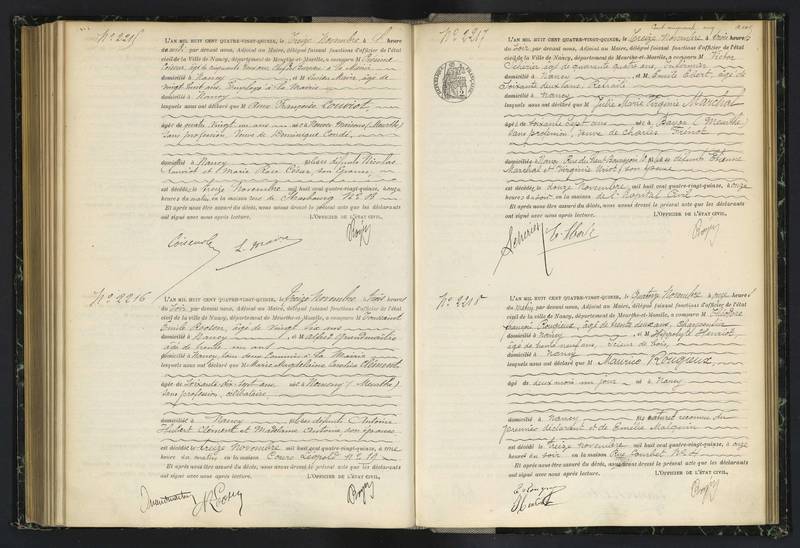 No 2215
L'AN MIL HUIT CENT QUATRE-VINGT-QUINZE, le Treize Novembre à heure
par devant nous, Adjoint au Maire, délégué faisant fonctions d'officier de l'état
civil de la ville de Nancy, département de Meurthe-et-Moselle, a comparu M
à la Mairie
domicilié à Nancy et M Lucien Maire, âgé de
vingt huit ans, Employé à la Mairie
domicilié à Nancy
lesquels nous ont déclaré que Anne Françoise Louviot
âgé de quatre Vingt un ans né à (Meurthe)
Sans profession, Veuve de Dominique Conde
domicilié à Nancy fille de défunts Nicolas
Louviot et Marie Rose César, son Epouse
est décédée, le treize Novembre mil huit cent quatre-vingt-quinze, à onze
heures du matin, en la maison rue de Strasbourg No
Et après nous être assuré du décès, nous avons dressé le présent acte que les déclarants
ont signé avec nous après lecture. L'OFFICIER DE L'ÉTAT CIVIL,
L. Maire
No 2216
L'AN MIL HUIT CENT QUATRE-VINGT-QUINZE, le Treize Novembre, à trois heures
du Soir, par devant nous, Adjoint au Maire, délégué faisant fonctions d'officier de l'état
civil de la ville de Nancy, département de Meurthe-et-Moselle, a comparu M Toussaint
Emile âgé de Vingt six ans
domicilié à Nancy, et M Alfred
âgé de trente un ans
domicilié à Nancy, tous deux Commis à la Mairie
lesquels nous ont déclaré que Marie Magdeleine Caroline Clément
âgée de Soixante dix sept ans née à Nomeny (Meurthe)
Sans profession, célibataire
domiciliée à Nancy fille de défunts Antoine
Hubert Clément et Madeleine Antoine, son épouse
est décédée le treize Novembre mil huit cent quatre-vingt-quinze, à une
heure du matin, en la maison Cours Léopold No
Et après nous être assuré du décès, nous avons dressé le présent acte que les déclarants
ont signé avec nous après lecture. L'OFFICIER DE L'ÉTAT CIVIL,
No 2217
L'AN MIL HUIT CENT QUATRE-VINGT-QUINZE, le Treize Novembre à trois heures
du Soir, par devant nous, Adjoint au Maire, délégué faisant fonctions d'officier de l'état
civil de la ville de Nancy, département de Meurthe-et-Moselle, a comparu M Victor
âgé de quarante quatre ans, Infirmier
domicilié à Nancy et M Emile âgé de
Soixante deux ans, Retraité
domicilié à Nancy
lesquels nous ont déclaré que Julie Marie Virginie Marchal
âgée de soixante Sept ans née à Bayon (Meurthe)
Sans profession, Veuve de Charles
domiciliée à Nancy, Rue du Haut Bourgeois fille de défunts Etienne
Marchal et Virginie son épouse
est décédée le douze Novembre, mil huit cent quatre-vingt-quinze, à onze
heures du Soir en la maison de l'Hôpital Civil
Et après nous être assuré du décès, nous avons dressé le présent acte que les déclarants
ont signé avec nous après lecture. L'OFFICIER DE L'ÉTAT CIVIL,
No 2218
L'AN MIL HUIT CENT QUATRE-VINGT-QUINZE, le Quatorze Novembre à onze heures
du Matin, par devant nous, Adjoint au Maire, délégué faisant fonctions d'officier de l'état
civil de la ville de Nancy, département de Meurthe-et-Moselle, a comparu M Théodore
François Rougieux, âgé de trente deux ans, Charpentier
domicilié à Nancy et M Hippolyte Henriot
âgé de trente neuf ans, scieur de bois
domicilié à Nancy
lesquels nous ont déclaré que Maurice Rougieux
âgé de deux mois un jour né à Nancy
domicilié à Nancy fils naturel reconnu du
premier déclarant et de Emilie
est décédé le treize novembre mil huit cent quatre-vingt-quinze, à onze
heures du soir en la maison Rue Courbet
Et après nous être assuré du décès, nous avons dressé le présent acte que les déclarants
ont signé avec nous après lecture. L'OFFICIER DE L'ÉTAT CIVIL,